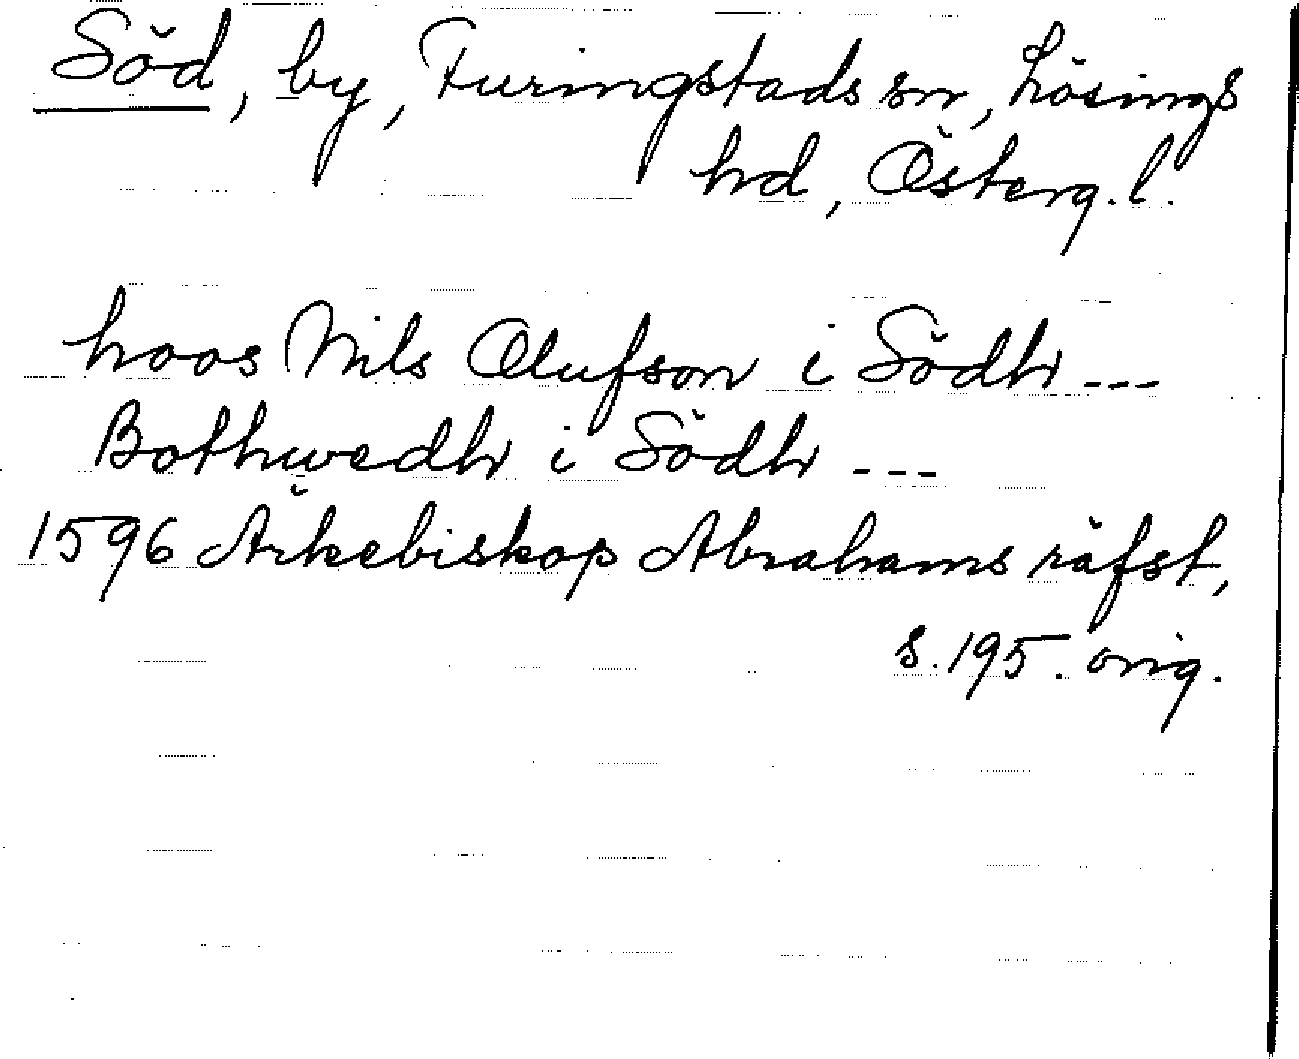 Söd, by, Furingstads sn, Lösings
hd, Österg. l.
hoos Nils Olufson i Södh ---
Bothwedh i Södh ---
1596 Ärkebiskop Abrahams räfst,
s. 195. orig.